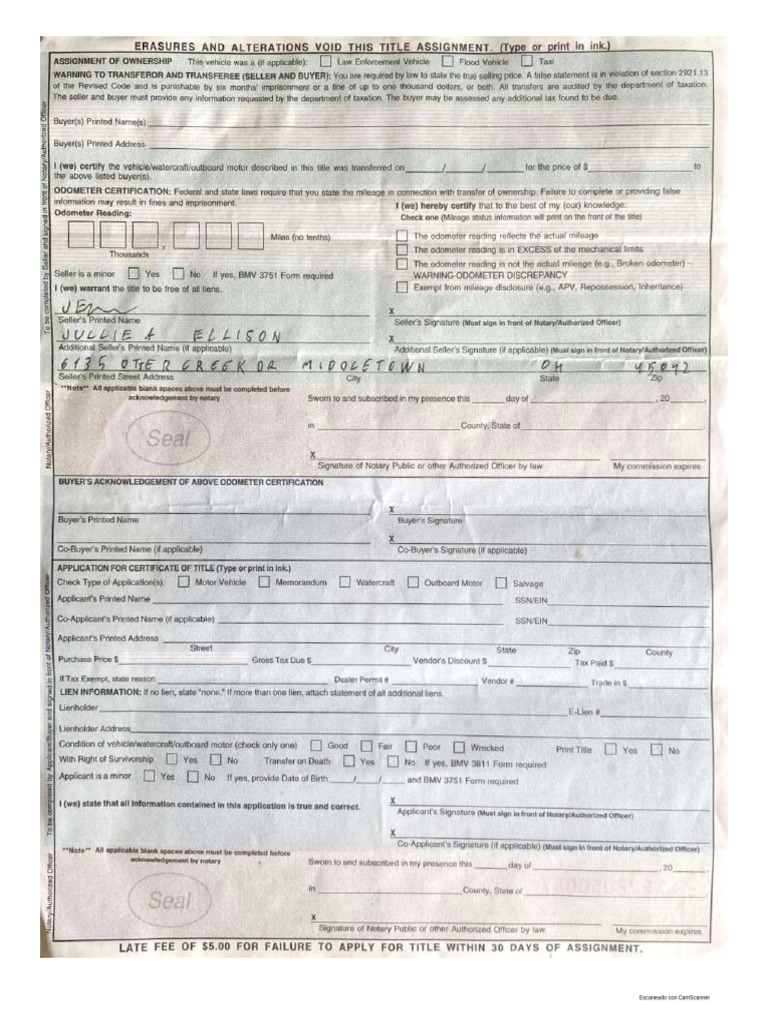 ERASURES AND ALTERATIONS VOID THIS TITLE ASSIGNMENT. (Type or print in ink.)
ASSIGNMENT OF OWNERSHIP This vehicle was a (if applicable): Law Enforcement Vehicle Flood Vehicle Taxi
WARNING TO TRANSFEROR AND TRANSFEREE (SELLER AND BUYER): You are required by law to state the true selling price. A false statement is in violation of section 2921.13
of the Revised Code and is punishable by six months' imprisonment or a fine of up to one thousand dollars, or both. All transfers are audited by the department of taxation.
The seller and buyer must provide any information requested by the department of taxation. The buyer may be assessed any additional tax found to be due.
Buyer(s) Printed Name(s)
Buyer(s) Printed Address
I (we) certify the vehicle/watercraft/outboard motor described in this title was transferred on / / for the price of $ to
the above listed buyer(s).
ODOMETER CERTIFICATION: Federal and state laws require that you state the mileage in connection with transfer of ownership. Failure to complete or providing false
information may result in fines and imprisonment.
I (we) hereby certify that to the best of my (our) knowledge:
Odometer Reading:
Check one (Mileage status information will print on the front of the title)
, Miles (no tenths)
Thousands
The odometer reading reflects the actual mileage
The odometer reading is in EXCESS of the mechanical limits
The odometer reading is not the actual mileage (e.g., Broken odometer) -
WARNING-ODOMETER DISCREPANCY
Exempt from mileage disclosure (e.g., APV, Repossession, Inheritance)
Seller is a minor Yes No If yes, BMV 3751 Form required
I (we) warrant the title to be free of all liens.
X
Seller's Printed Name Seller's Signature (Must sign in front of Notary/Authorized Officer)
JULLIE A ELLISON X
Additional Seller's Printed Name (if applicable) Additional Seller's Signature (if applicable) (Must sign in front of Notary/Authorized Officer)
6135 OTTER CREEK DR MIDDLETOWN OH 45042
Seller's Printed Street Address City State Zip
**Note** All applicable blank spaces above must be completed before
acknowledgement by notary
Sworn to and subscribed in my presence this day of , 20
in County, State of
Seal
X
Signature of Notary Public or other Authorized Officer by law My commission expires
BUYER'S ACKNOWLEDGEMENT OF ABOVE ODOMETER CERTIFICATION
X
Buyer's Printed Name Buyer's Signature
X
Co-Buyer's Printed Name (if applicable) Co-Buyer's Signature (if applicable)
APPLICATION FOR CERTIFICATE OF TITLE (Type or print in ink.)
Check Type of Application(s): Motor Vehicle Memorandum Watercraft Outboard Motor Salvage
Applicant's Printed Name SSN/EIN
Co-Applicant's Printed Name (if applicable) SSN/EIN
Applicant's Printed Address
Street City State Zip County
Purchase Price $ Gross Tax Due $ Vendor's Discount $ Tax Paid $
If Tax Exempt, state reason Dealer Permit # Vendor # Trade in $
LIEN INFORMATION: If no lien, state "none." If more than one lien, attach statement of all additional liens.
Lienholder E-Lien #
Lienholder Address
Condition of vehicle/watercraft/outboard motor (check only one) Good Fair Poor Wrecked Print Title Yes No
With Right of Survivorship Yes No Transfer on Death Yes No If yes, BMV 3811 Form required
Applicant is a minor Yes No If yes, provide Date of Birth / / and BMV 3751 Form required
I (we) state that all information contained in this application is true and correct.
X
Applicant's Signature (Must sign in front of Notary/Authorized Officer)
X
Co-Applicant's Signature (if applicable) (Must sign in front of Notary/Authorized Officer)
**Note** All applicable blank spaces above must be completed before
acknowledgement by notary
Sworn to and subscribed in my presence this day of , 20
in County, State of
Seal
X
Signature of Notary Public or other Authorized Officer by law My commission expires
LATE FEE OF $5.00 FOR FAILURE TO APPLY FOR TITLE WITHIN 30 DAYS OF ASSIGNMENT.
To be completed by Seller and signed in front of Notary/Authorized Officer
Notary/Authorized Officer
To be completed by Applicant/Buyer and signed in front of Notary/Authorized Officer
Notary/Authorized Officer
Escaneado con CamScanner